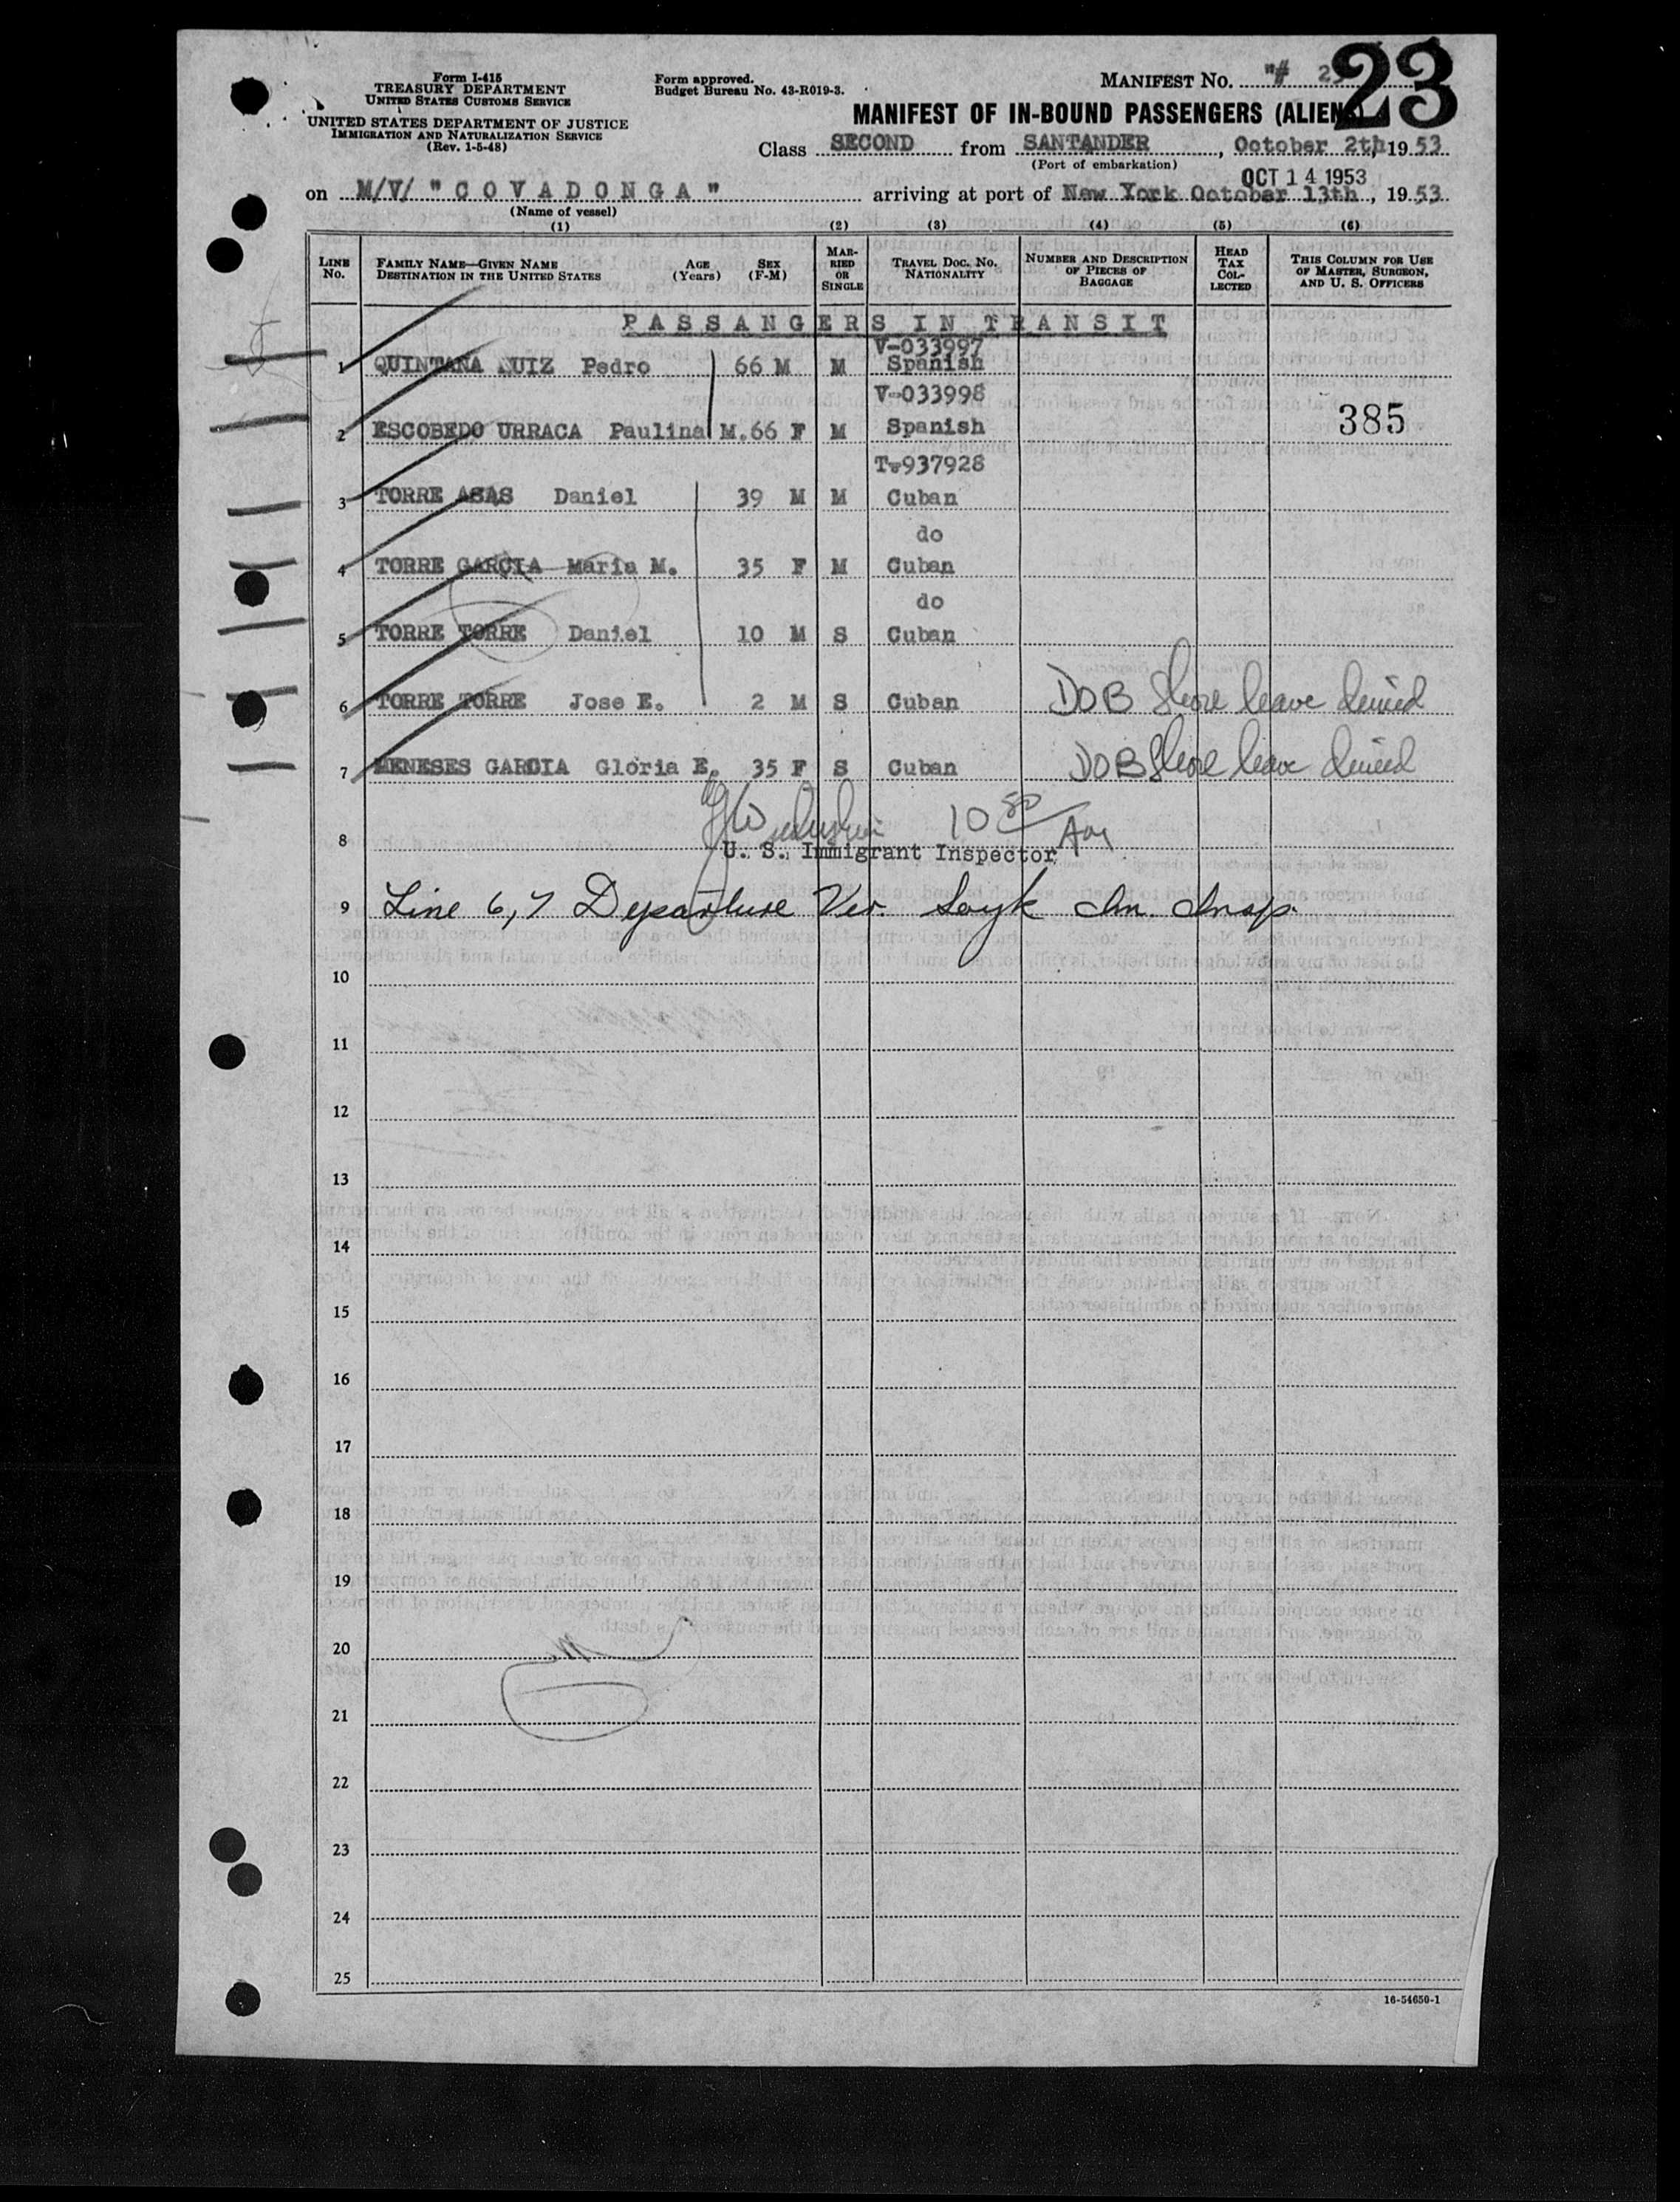 Form I-415
TREASURY DEPARTMENT
UNITED STATES CUSTOMS SERVICE
UNITED STATES DEPARTMENT OF JUSTICE
IMMIGRATION AND NATURALIZATION SERVICE
(Rev. 1-5-48)
Form approved.
Budget Bureau No. 43-R019-3.
MANIFEST NO. "# 23
23
MANIFEST OF IN-BOUND PASSENGERS (ALIEN
Class SECOND from SANTANDER, October 2th, 1953
(Port of embarkation)
OCT 14 1953
on M/V/ "COVADONGA" arriving at port of New York October 13th, 1953
(Name of vessel)
(1) (2) (3) (4) (5) (6)
LINE No. FAMILY NAME—GIVEN NAME DESTINATION IN THE UNITED STATES AGE (Years) SEX (F-M) MARRIED OR SINGLE TRAVEL DOC. NO. NATIONALITY NUMBER AND DESCRIPTION OF PIECES OF BAGGAGE HEAD TAX COLLECTED THIS COLUMN FOR USE OF MASTER, SURGEON, AND U. S. OFFICERS
PASSANGERS IN TRANSIT
V-033997
1 QUINTANA RUIZ Pedro 66 M M Spanish
V-033998
2 ESCOBEDO URRACA Paulina M. 66 F M Spanish 385
T-937928
3 TORRE ASAS Daniel 39 M M Cuban
do
4 TORRE GARCIA Maria M. 35 F M Cuban
do
5 TORRE TORRE Daniel 10 M S Cuban
6 TORRE TORRE Jose E. 2 M S Cuban DOB Shore leave denied
7 MENESES GARCIA Gloria E. 35 F S Cuban DOB Shore leave denied
10 50 Am
8 U. S. Immigrant Inspector
9 Line 6, 7 Departure Ver. Im. Insp.
10
11
12
13
14
15
16
17
18
19
20
21
22
23
24
25
16-54650-1